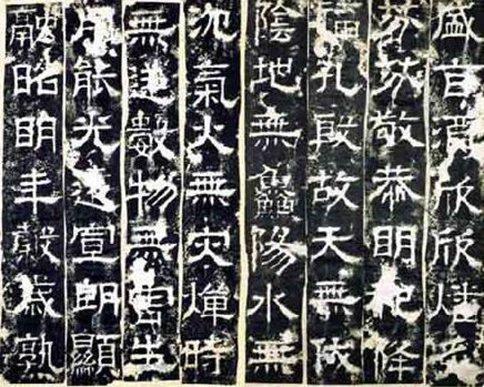 盛旨酒欣欣燔炙
芬芬敬恭明祀降
福孔殷故天無伏
陰地無鱻陽水無
沈氣火無灾燀時
無逆數物無害生
用能光遠宣朗顯
融昭明年穀歲孰